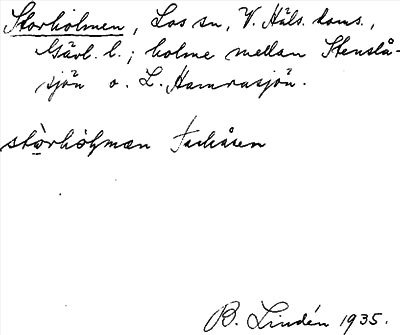 Storholmen, Los sn, V. Häls. doms.,
Gävl. l.; holme mellan Stenslå-
sjön o. L. Hamrasjön.
stòrhòḷmæn Fackåsen
B. Lindén 1935.